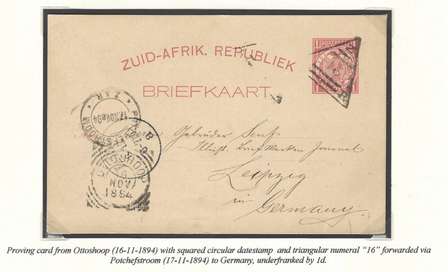 ZUID-AFRIK. REPUBLIEK
BRIEFKAART.
Gebrüder Senf
Journal
Leipzig
in
Germany
16
Z.A.R.
17 NOV 94
NOV
1894
Proving card from Ottoshoop (16-11-1894) with squared circular datestamp and triangular numeral "16" forwarded via
Potchefstroom (17-11-1894) to Germany, underfranked by 1d.